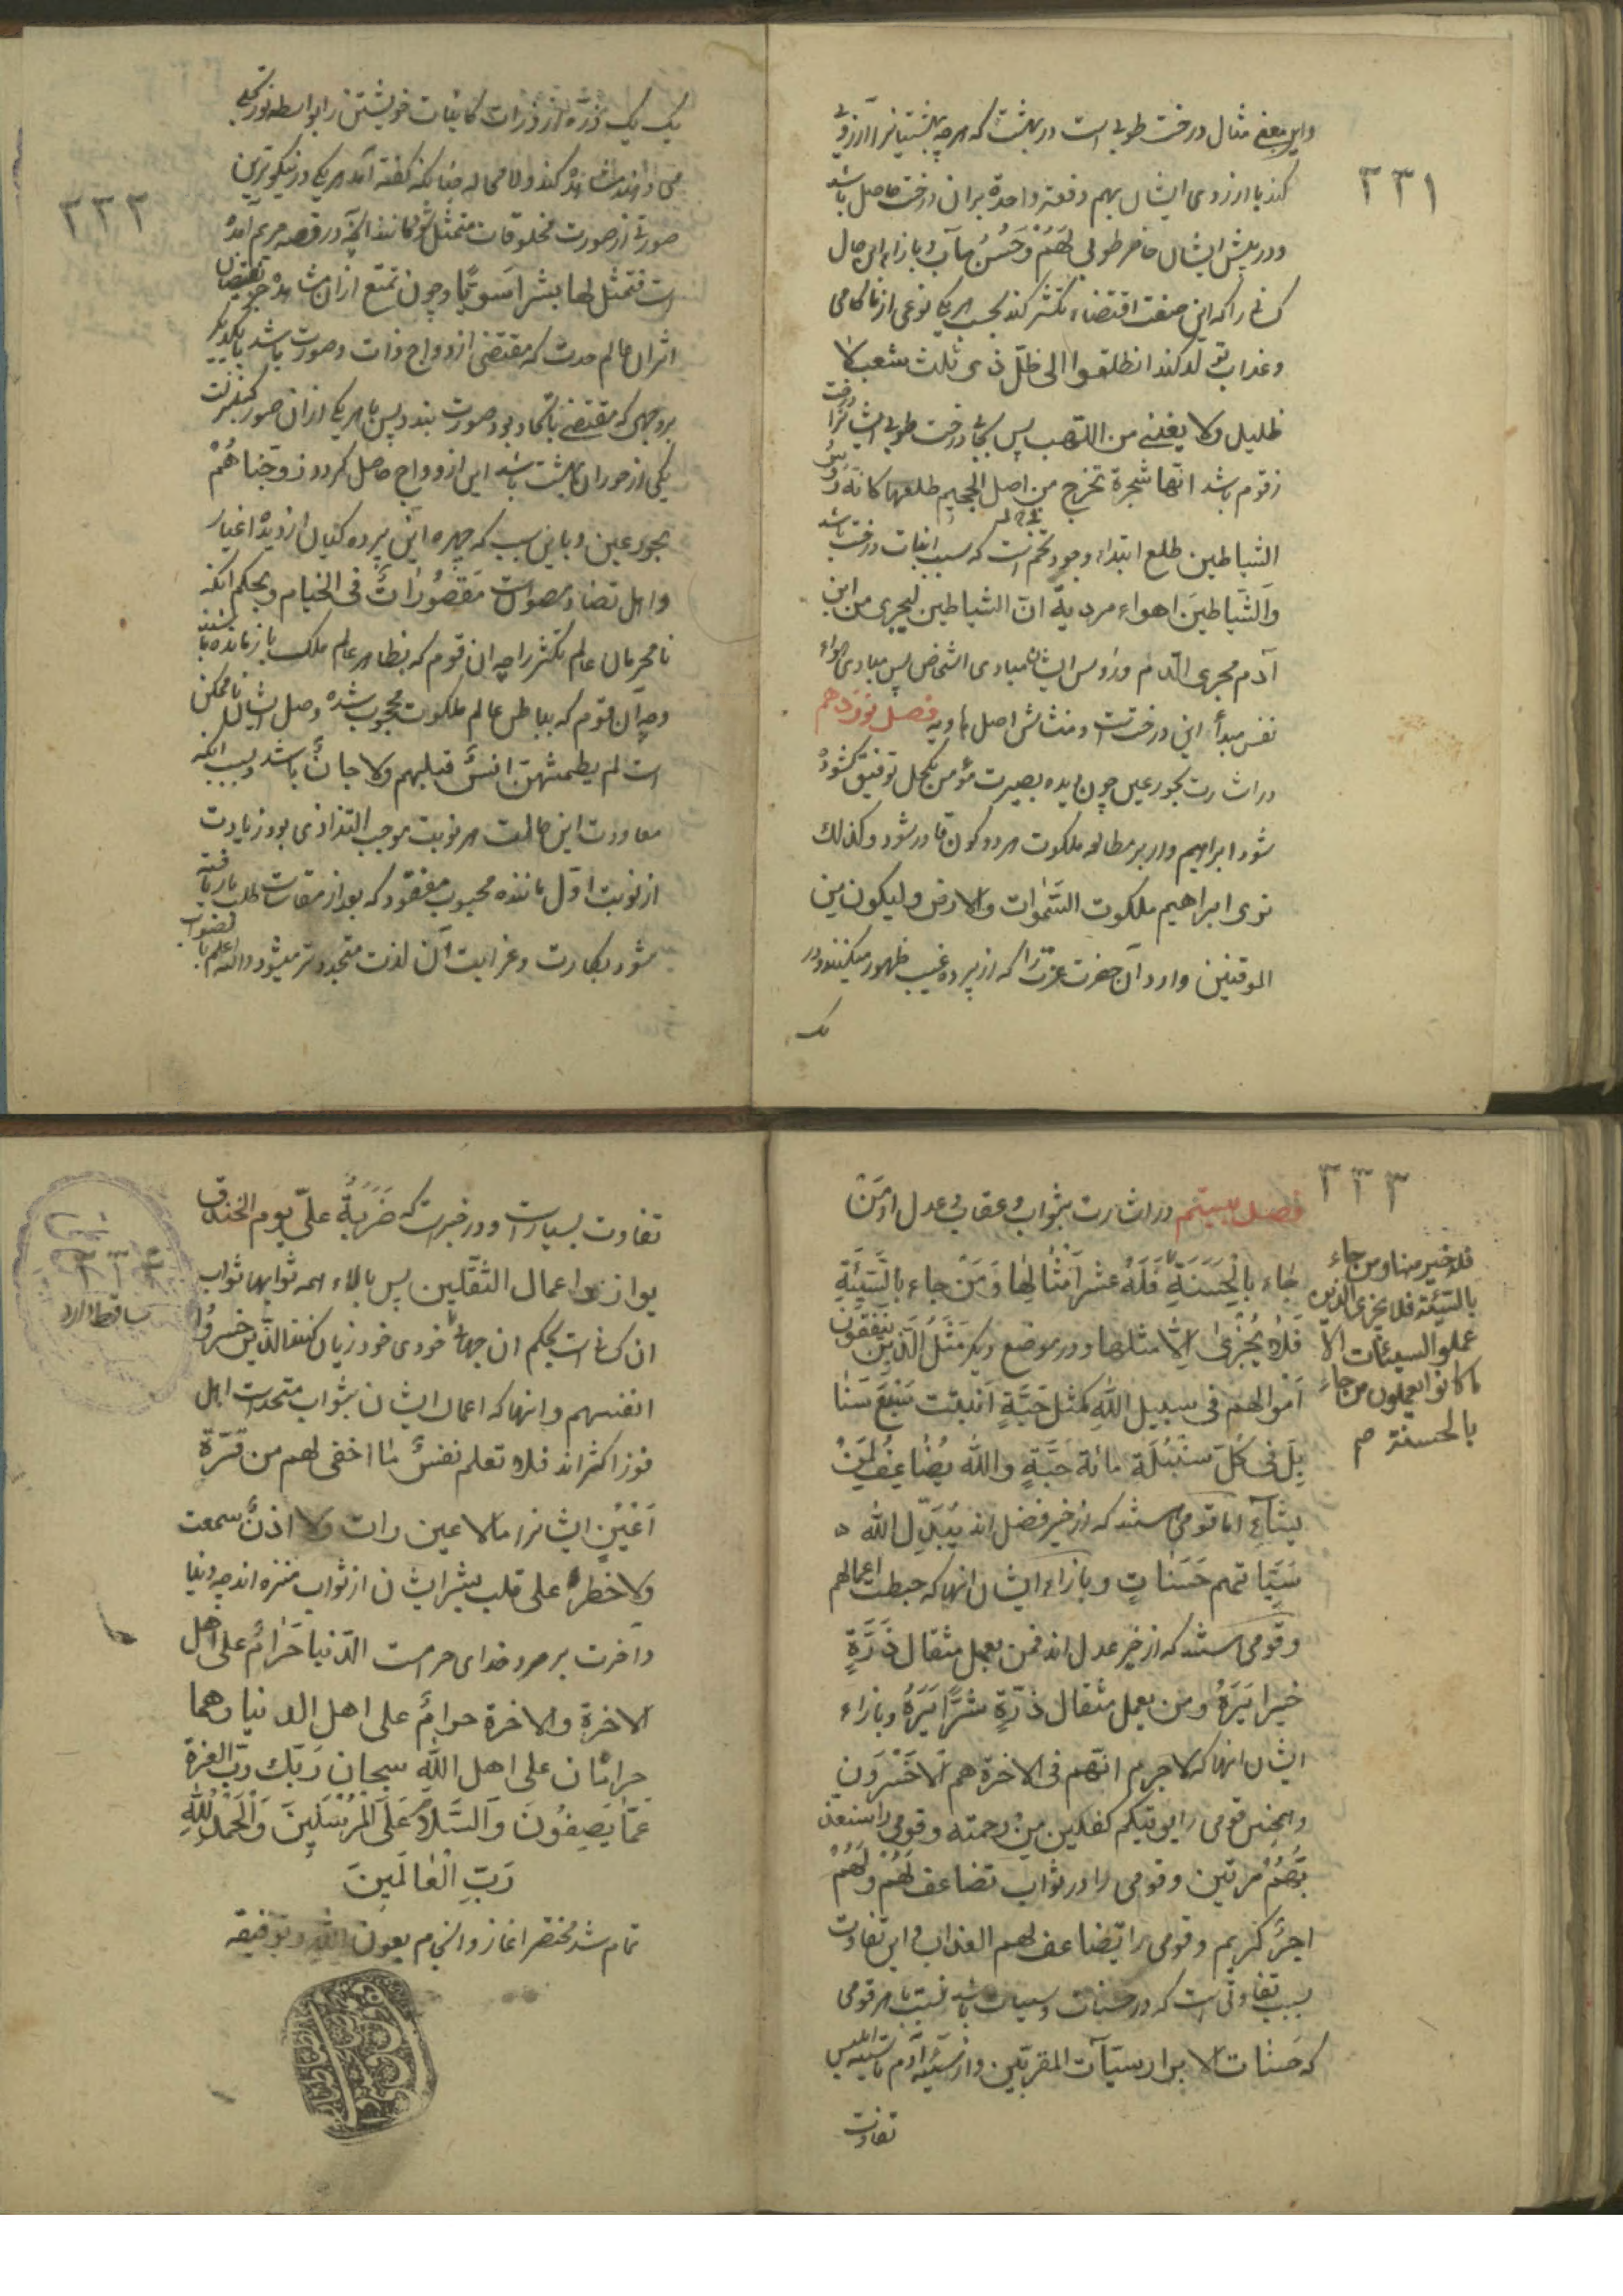 ۳۳۱
واین معنی مثال درخت طوبی است در بهشت که هرچه بهشتیانرا آرزوی
کند با ارزوی ایشان بهم دفعة واحدة بران درخت حاصل باشد
ودر پیش ایشان حاضر طوبی لَهُمْ وَحُسْنُ مآب وبازاء این حال
کسانی راکه این صفت اقتضاء تکثر کند بحسب هریکی نوعی از ناکامی
وعذاب تولد کند انطلقوا الی ظلّ ذی ثلث شعب لا
ظلیل ولا یغنی من اللّهب پس بجای درخت طوبی ایشانرا درخت
زقوم باشد انّها شجرة تخرج من اصل الجحیم طلعها کانّه رؤس
الشیاطین طلع ابتداء وجود تخم است که سبب انبات درخت باشد
والشّیاطینَ اهواء مردیة انّ الشیاطین لیجری من ابن
آدم مجری الدّم ورؤس ایشان مبادی اشخاص پس مبادی هواء
نفس مبدأ این درختست ومنشائش اصل هاویه فصل نوزدهم
در اشارت بحور عین چون دیده بصیرت مؤمن بکحل توفیق گشوده
شود ابراهیم وار بر مطالعه ملکوت هر دو کون قادر شود وکذلك
نری ابراهیم ملکوت السّموات والارض ولیکون من
الموقنین وارد آن حضرت عزّت را که از پرده غیب ظهور میکنند ودر
یک
۳۳۲
یک یک ذرّه از ذرات کاینات خویشتن را بواسطه نور تجلی
می دانند مشاهده کند ولا محاله چنانکه گفته آمد هریکی در نیکوترین
صورتی از صورت مخلوقات متمثل شود مانند آنچه در قصه مریم آمده
است فتمثّل لها بشرا سَوِیًّا وچون تمتع ازان مشاهده جز بفیضان
اثر ان عالم وحدت که مقتضی ازدواج ذات وصورت باشد با یکدیگر
بر وجهی که مقتضی اتّحاد بود صورت نبندد پس با هریکی ازان صور که بمنزلت
یکی از حوران بهشت باشد این ازدواج حاصل گردد وزوجناهُمْ
بحورعین وباین سبب که چهره این پرده گیان از دیده اغیار
واهل تضاد مصونست مَقْصُوراتٌ فی الخیام وبحکم انکه
نامحرمان عالم تکثر را چه ان قوم که بظاهر عالم ملک بازمانده باشند
وچه ان قوم که بباطن عالم ملکوت محجوب شده وصل ایشان ناممکن
است لم یطمثهنّ انسٌ قبلهم ولا جانٌّ باشد وسبب انکه
معاودت این حالت هر نوبت موجب التذاذی بود زیادت
از نوبت اول مانند محبوب مفقود که بعد از مقاسات طلب باز یافته
شود بکارت وعزابت آن لذت متجدد تر میشود والله اعلم بالصواب
۳۳۳
فصل بیستم در اشارت بثواب وعقاب وعدل او مَنْ
جٰاء بِالْحَسَنَةِ فَلَهُ عَشْرُ اَمْثٰالِهٰا وَمَنْ جاء بِالسَّیِّئَةِ
فَلاٰ یُجْزیٰ اِلّا مثلها ودر موضع دیگر مَثَلُ الَّذینَ یُنْفِقُونَ
اَمْوالهم فی سبیل اللّٰه کمثل حَبَّةٍ اَنْبتت سَبْعَ سَنٰا
بِلَ فی کُلّ سُنْبُلَة مائة حَبَّةٍ والله یُضٰاعِفُ لِمَنْ
یَشٰآء اما قومی هستند که از خیر فضل اند یُبَدِّل الله
سَیِّئاتهم حَسَنٰاتٍ وبازاء ایشان انها که حبطت اعمالهم
وقومی هستند که از خیر عدل اند فمن یعمل مثقال ذَرَّةٍ
خیرا یَرَهُ ومن یعمل مثقال ذرّةٍ شَرًّا یَرَهُ وبازاء
ایشان انها که لاجرم انّهم فی الاخرة هم الاَخْسَرُون
وهمچنین قومی را یؤتیکم کفلین مِنْ رحمته وقومی را سنعذ
بّهُمْ مرتین وقومی را در ثواب تضاعف لَهُمْ وَلَهُمْ
اجرٌ کَریم وقومی را یضاعف لهم العذاب واین تفاوت
بسبب تفاوتی است که در حسنات وسیئات باشد نسبت با هر قومی
که حَسَنٰات الابرار سیّآت المقربّین واز سیّئه آدم تا سیئه ابلیس
تفاوت
فله خیر منها ومن جاء
بالسّیئة فلا یجزی الّذین
عملوا السیئات الا
ما کانوا یعملون من جاء
بالحسنة م
تفاوت بسیارست ودر خبرست که ضَرْبَةُ علیّ یوم الخندق
یوازی اعمال الثّقلین پس بالاء همه ثوابها ثواب
ان کسانی است بحکم ان جهات خودی خود زیان کنند الّذین خسروا
انفسهم وانها که اعمال ایشان بثواب متحدست اهل
فوز اکثر اند فلا تعلم نفسٌ مٰا اخفی لهم من قُرَّةِ
اَعْیُنٍ ایشانرا مالا عین رات ولا اذنٌ سمعت
ولا خطر علی قلب بشر ایشان از ثواب منزه اند چه دنیا
وآخرت بر مرد خدای حرامست الدّنیا حَرامٌ علی اهل
الاخرة والاخرة حرامٌ علی اهل الدنیا وهما
حرامٰان علی اهل اللّٰه سبحان ربّك ربّ العزة
عَمّٰا یَصِفُونَ وَالسَّلاٰمُ عَلَی الْمُرْسَلِینَ وَالْحَمْدُ لِلّٰهِ
رَبِّ الْعٰالَمِینَ
تمام شد مختصر اغاز وانجام بعون الله وتوفیقه
۳۳۴
ساقط دارد